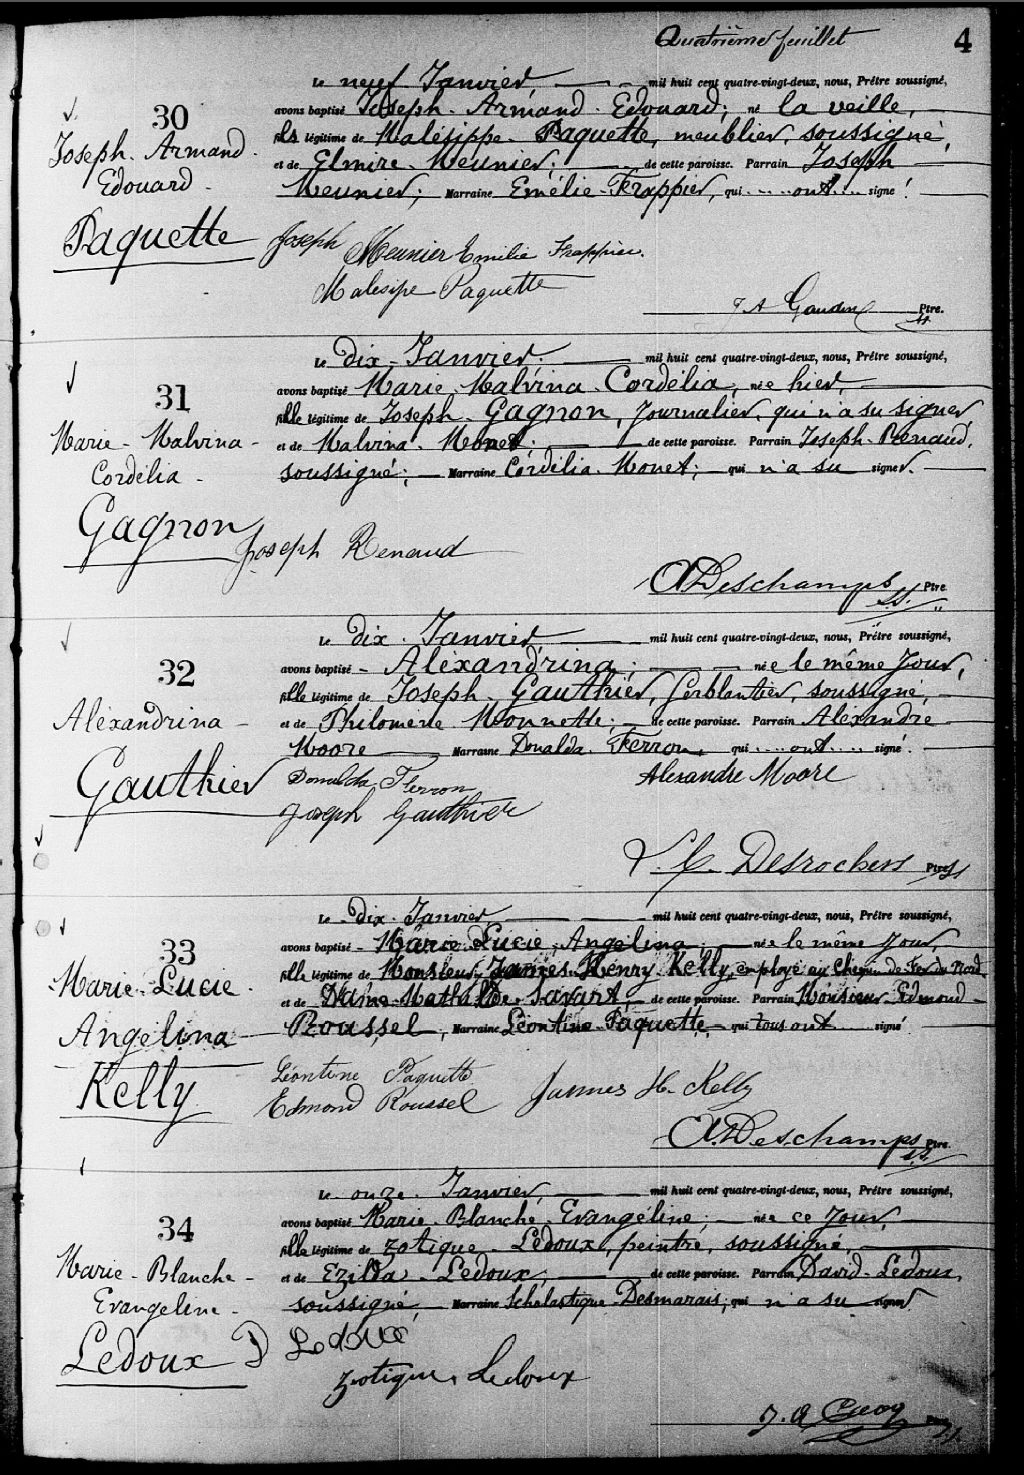 Quatrième feuillet
4
30
Joseph. Armand.
Edouard.
Paquette
Le neuf Janvier, mil huit cent quatre-vingt-deux, nous, Prêtre soussigné,
avons baptisé Joseph. Armand. Edouard; né la veille,
fils légitime de Malésippe. Paquette, meublier, soussigné,
et de Elmire. Meunier; de cette paroisse. Parrain Joseph
Meunier; Marraine Emélie. Frappier, qui ont signé!
Joseph Meunier Emilie Frappier.
Malesipe Paquette
J A Gaudin Ptre.
31
Marie - Malvina -
Cordélia -
Gagnon
Le dix - Janvier. mil huit cent quatre-vingt-deux, nous, Prêtre soussigné,
avons baptisé Marie. Malvina. Cordélia, née hier,
fille légitime de Joseph. Gagnon, Journalier, qui n'a su signer
et de Malvina. Monet. de cette paroisse. Parrain Joseph. Renaud,
soussigné; Marraine Cordélia. Monet; qui n'a su signer.
Joseph Renaud
A Deschamps Ptre
32
Aléxandrina -
Gauthier
Le dix. Janvier mil huit cent quatre-vingt-deux, nous, Prêtre soussigné,
avons baptisé - Aléxandrina; née le même Jour,
fille légitime de Joseph. Gauthier, Ferblantier, soussigné,
et de Philomène Monnette; de cette paroisse. Parrain Aléxandre
Moore Marraine Donalda. Ferron, qui ont signé.
Donalda Ferron Alexandre Moore
Joseph Gauthier
Desrochers Ptre
33
Marie. Lucie.
Angélina
Kelly
Le dix. Janvier mil huit cent quatre-vingt-deux, nous, Prêtre soussigné,
avons baptisé - Marie. Lucie, Angélina; née le même Jour,
fille légitime de Monsieur James. Henry Kelly, employé au Chemin de Fer du Nord
et de Dame Mathilde Savart de cette paroisse. Parrain Monsieur Edmond
Roussel, Marraine Léontine Paquette qui tous ont signé
Léontine Paquette
Edmond Roussel James H. Kelly
A. Deschamps Ptre.
34
Marie - Blanche -
Evangeline -
Ledoux
Le onze. Janvier, mil huit cent quatre-vingt-deux, nous, Prêtre soussigné,
avons baptisé Marie. Blanche. Evangéline; née ce Jour,
fille légitime de Zotique - Ledoux, peintre, soussigné,
et de Ezilda - Ledoux; de cette paroisse. Parrain David. Ledoux,
soussigné, Marraine Scholastique Desmarais; qui n'a su signer
D Ledoux
Zotique Ledoux